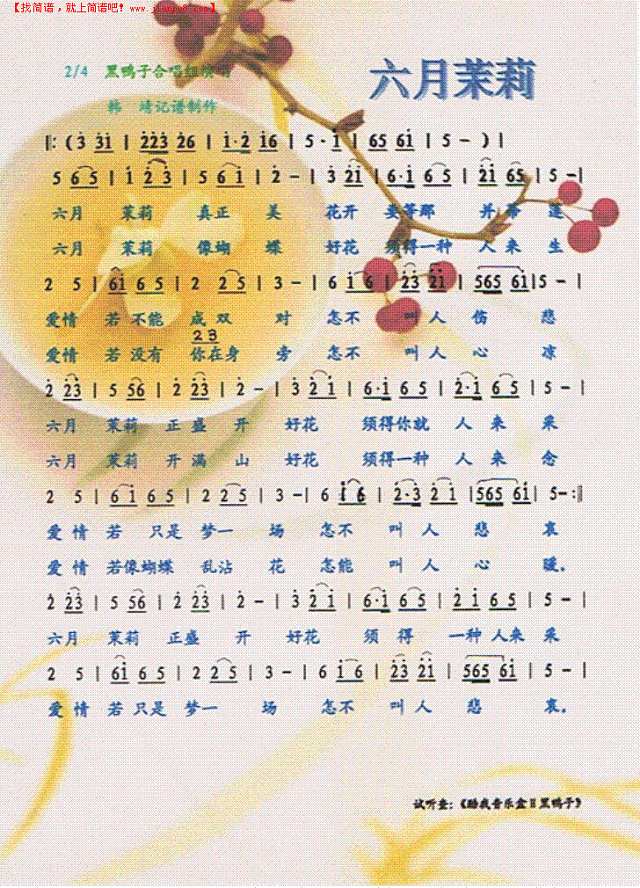 【找简谱,就上简谱吧! www.jianpu8.com】
六月茉莉
2/4 黑鸭子合唱组演唱
韩 靖记谱制作
‖: (3 31 | 223 26 | 1·2 16 | 5·1 | 65 61 | 5 - ) |
5 65 | 1 23 | 5 61 | 2 - | 3 21 | 6·1 65 | 21 65 | 5 - |
六月 茉莉 真正 美 花开 要等那 并蒂 莲
六月 茉莉 像蝴 蝶 好花 须得一种 人来 生
2 5 | 61 65 | 2 25 | 3 - | 6 16 | 23 21 | 565 61 | 5 - |
爱情 若不能 成双 对 怎不 叫人 伤 悲
23
爱情 若没有 你在身 旁 怎不 叫人 心 凉
2 23 | 5 56 | 2 23 | 2 - | 3 21 | 6·1 65 | 2·1 65 | 5 - |
六月 茉莉 正盛 开 好花 须得你就 人来 采
六月 茉莉 开满 山 好花 须得一种 人来 念
2 5 | 61 65 | 2 25 | 3 - | 6 16 | 2·3 21 | 565 61 | 5 - :‖
爱情 若 只是 梦一 场 怎不 叫人 悲 哀
爱情 若像蝴蝶 乱沾 花 怎能 叫人 心 暖。
2 23 | 5 56 | 2 23 | 2 - | 3 21 | 6·1 65 | 21 65 | 5 - |
六月 茉莉 正盛 开 好花 须得 一种人来 采
2 5 | 61 65 | 2 25 | 3 - | 6 16 | 23 21 | 565 61 | 5 - |
爱情 若只是 梦一 场 怎不 叫人 悲 哀。
试听壶:《酷我音乐盒Ⅱ黑鸭子》